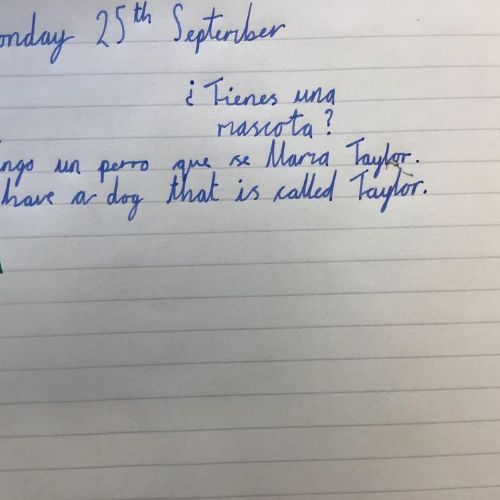 onday 25th September
¿Tienes una
mascota?
ngo un perro que se Mama Taylor.
have a dog that is called Taylor.